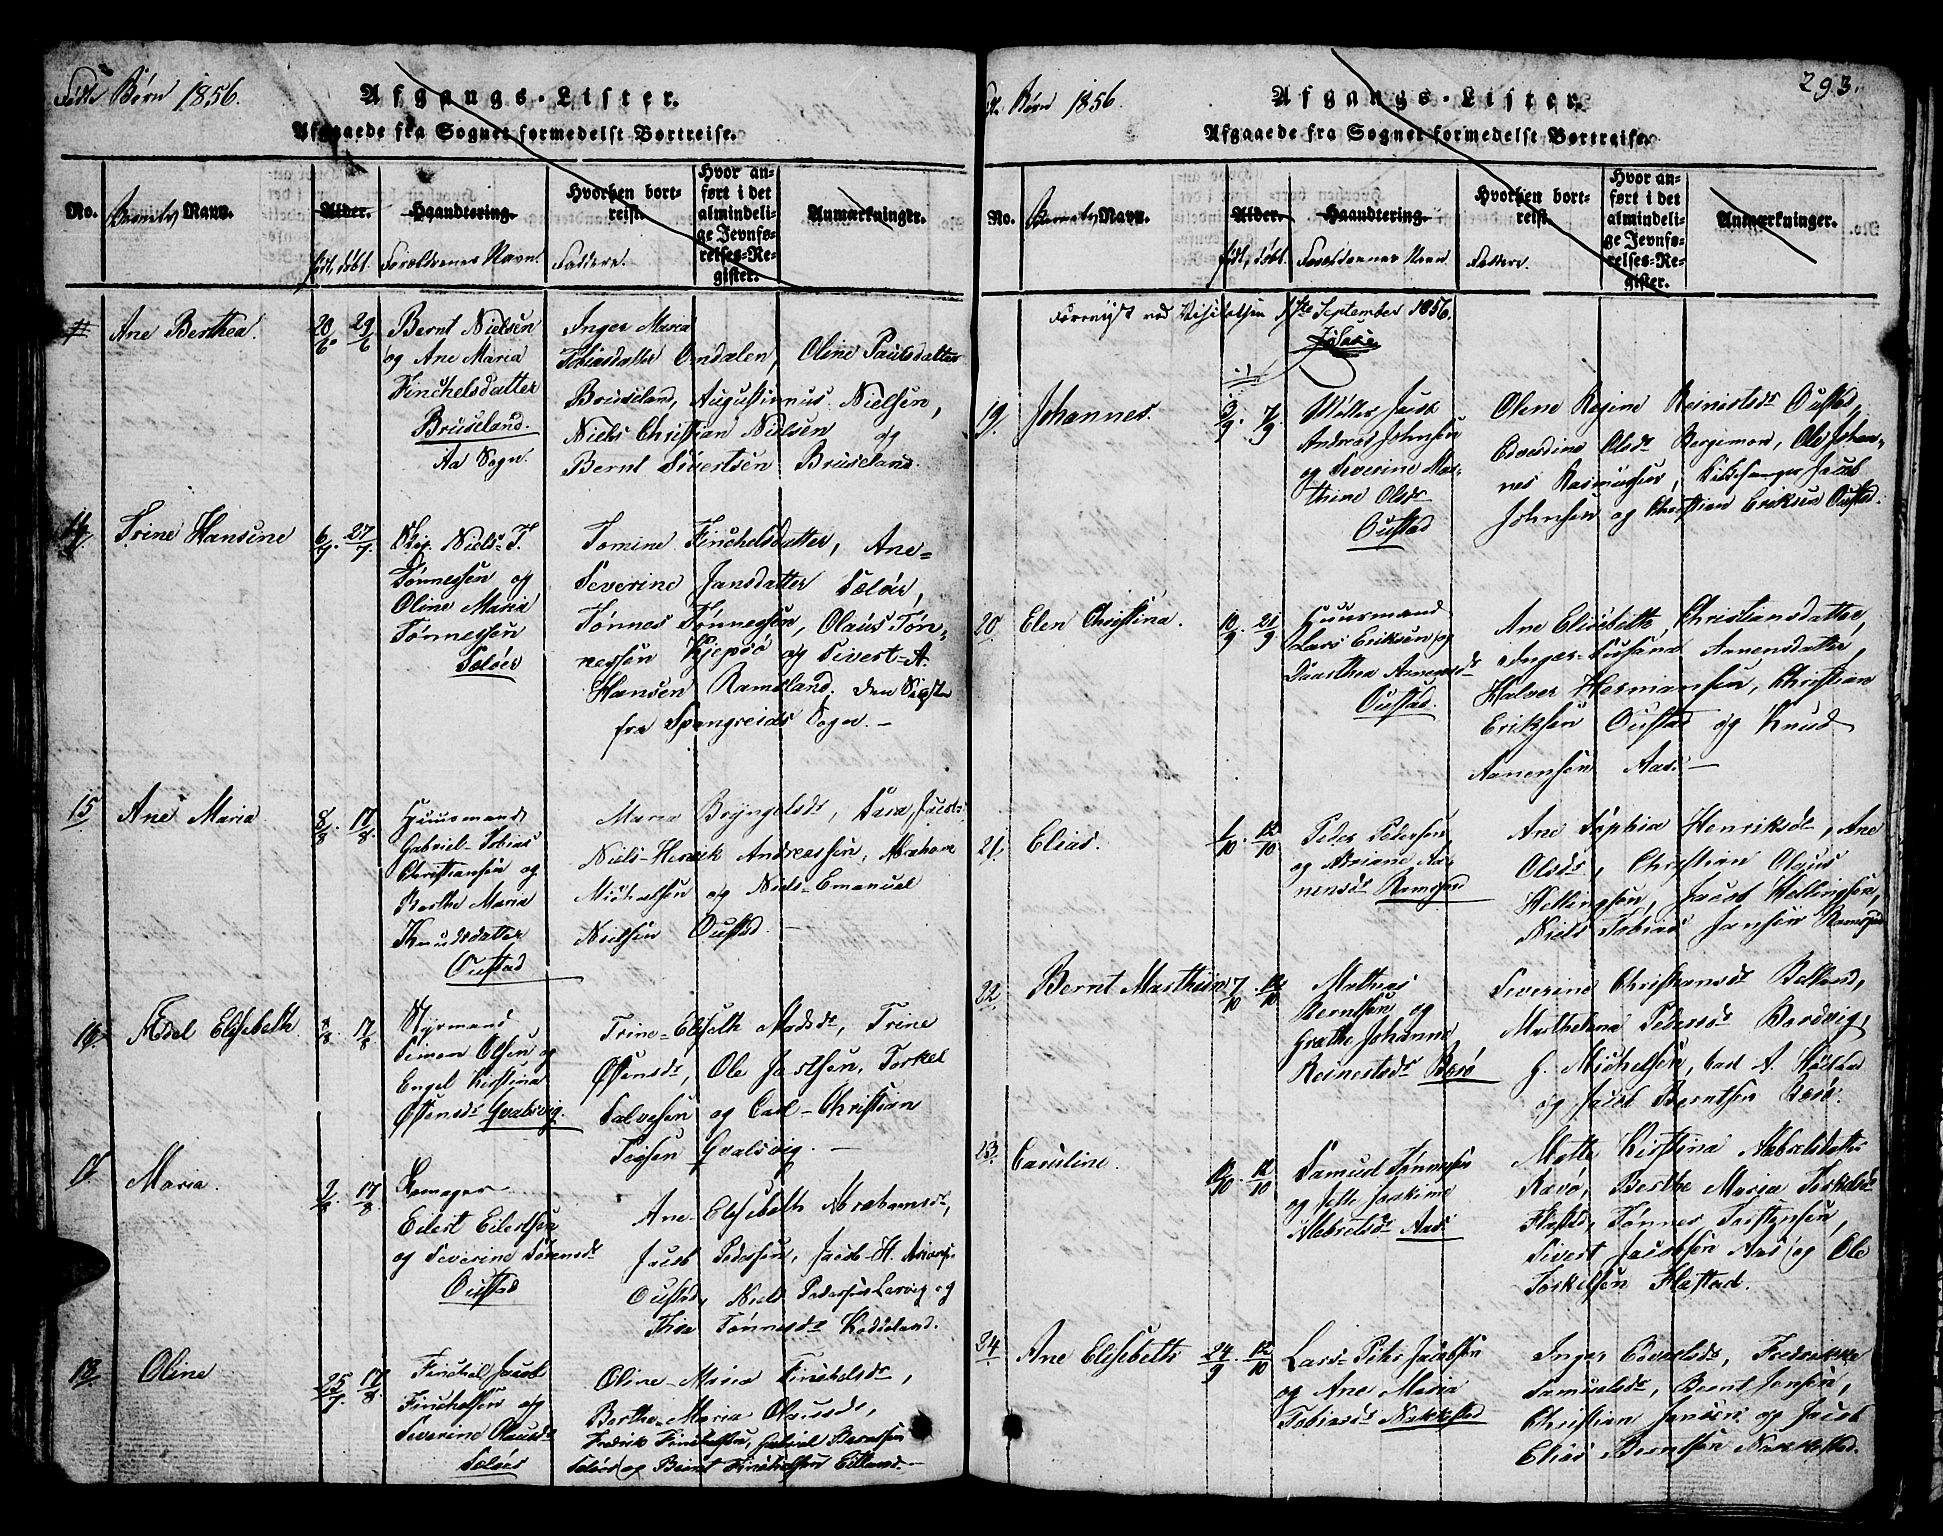 Fødte Børn 1856.
Afgangs-Lister.
Afgaaede fra Sognet formedelst Bortreise.
No.
Barnets Navn.
Alder.
født, døbt.
Haandtering.
Forældrenes Navn.
Hvorhen bort-
reist.
Faddere.
Hvor an-
ført i det
almindeli-
ge Jevnfø-
relses-Re-
gister.
Anmærkninger.
Ane Berthea.
20/6 29/6
Bernt Nielsen
og Ane Maria
Finchelsdatter
Bruseland.
Aa Sogn.
Inger Maria
Tobiasdatter Omdalen, Oline Paulsdatter
Bruseland, Augustinus Nielsen,
Niels Christian Nielsen og
Bernt Sivertsen Bruseland.
14.
Trine Hansine
6/7. 27/7.
Niels T.
Tønnessen og
Oline Maria
Tønnessen
Sælør
Tomine Finchelsdatter, Ane-
Severine Jansdatter Sælør,
Tønnes Tønnessen, Olaus Tøn-
nessen Kjepsø og Sivert A.
Hansen Ramsland, den Sidste
fra Spangreids Sogn. -
15
Ane Maria
8/8. 17/8.
Huusmand
Gabriel Tobias
Christiansen og
Berthe Maria
Knudsdatter
Oustad
Maria Bryngelsdr, Sara Jacobs
Niels Henrik Andreassen, Abraham
Michaelsen og Niels Emanuel
Nielsen Oustad. -
16.
Edel Elisebeth
17/8
Styrmand
Simon Olsen og
Engel Kirstina
Ostensdr Gvalsvig.
Trine Elisbeth Madsdr, Trine
Ostensdr, Ole Jacobsen, Torkel
Salvesen og Carl Christian
Gvalsvig. -
17
Maria.
17/8.
Eilert Eilertsen
og Severine Sørensdr
Oustad
Ane Elisebeth Abrahamsdr,
Jacob Pedersen, Jacob H.
Oustad, Niels Pedersen Larvig og
Tønnesdr Koddeland.
18.
Oline
25/7. 17/8.
Finchel Jacob
Finchelsen og
Severine Olausdr
Sælør
Oline Maria Finchelsdr,
Berthe Maria Olausdr,
Fredrik Finchelsen, Gabriel Berntsen
Sælør og Bernt Finchelsen Eitland. -
293.
Børn 1856.
Afgangs-Lister.
Afgaaede fra Sognet formedelst Bortreise.
No.
Barnets Navn.
Alder.
født, døbt.
Haandtering.
Forældrenes Navn
Hvorhen bort-
reist.
Faddere.
Hvor an-
ført i det
almindeli-
ge Jevnfø-
relses-Re-
gister.
Anmærkninger.
Foreviist ved Visitatsen September 1856.
19.
Johannes.
3/9. 7/9
Jacob
Andreas Johnsen
og Severine Mar-
thine Olsdr
Oustad
Olene Regine Reinestsdr Oustad,
Edvardine Olsdr Bergemon, Ole Johan-
nes Rasmussen, Kirkesanger Jacob
Johnsen og Christian Eriksen Oustad.
20.
Elen Christina.
10/9. 21/9
Huusmand
Lars Eriksen og
Daarthea Aanensdr
Oustad.
Ane Elisebeth Christiansdatter,
Inger Susana Aanensdatter,
Halvor Hermansen, Christian
Eriksen Oustad og Knud
Aanensen Aas. -
21.
Elias.
1/10. 12/10
Peder Pedersen
og Adriane Aa-
nensdr
Ane Sophia Henriksdr, Ane
Olsdr, Christian Olaus
Hellingsen, Jacob Hellingsen,
Niels Tobias Jansen
22.
Bernt Marthin
7/10. 12/10
Mathias
Berntsen og
Grethe Johanne
Reinestsdr
Severine Christiansdr
Marthelena Pedersdr
G. Michelsen, Carl A.
og Jacob Berntsen
23.
Caroline.
12/10
Samuel Tønnesen
og Joakime
Aas
Mette Kirstina
Berthe Maria Torkelsdr
Flastad, Tønnes Torstensen,
Sivert Jacobsen Aas og Ole
Torkelsen Flastad.
24
Ane Elisebeth
24/9. 12/10
Lars Peter Jacobsen
og Ane Maria
Tobiasdr Nakkestad
Inger Edvartsdr, Fredrikke
Samuelsdr, Bernt Jensen,
Christian Jansen og Jacob
Elias Berntsen Nakkestad.